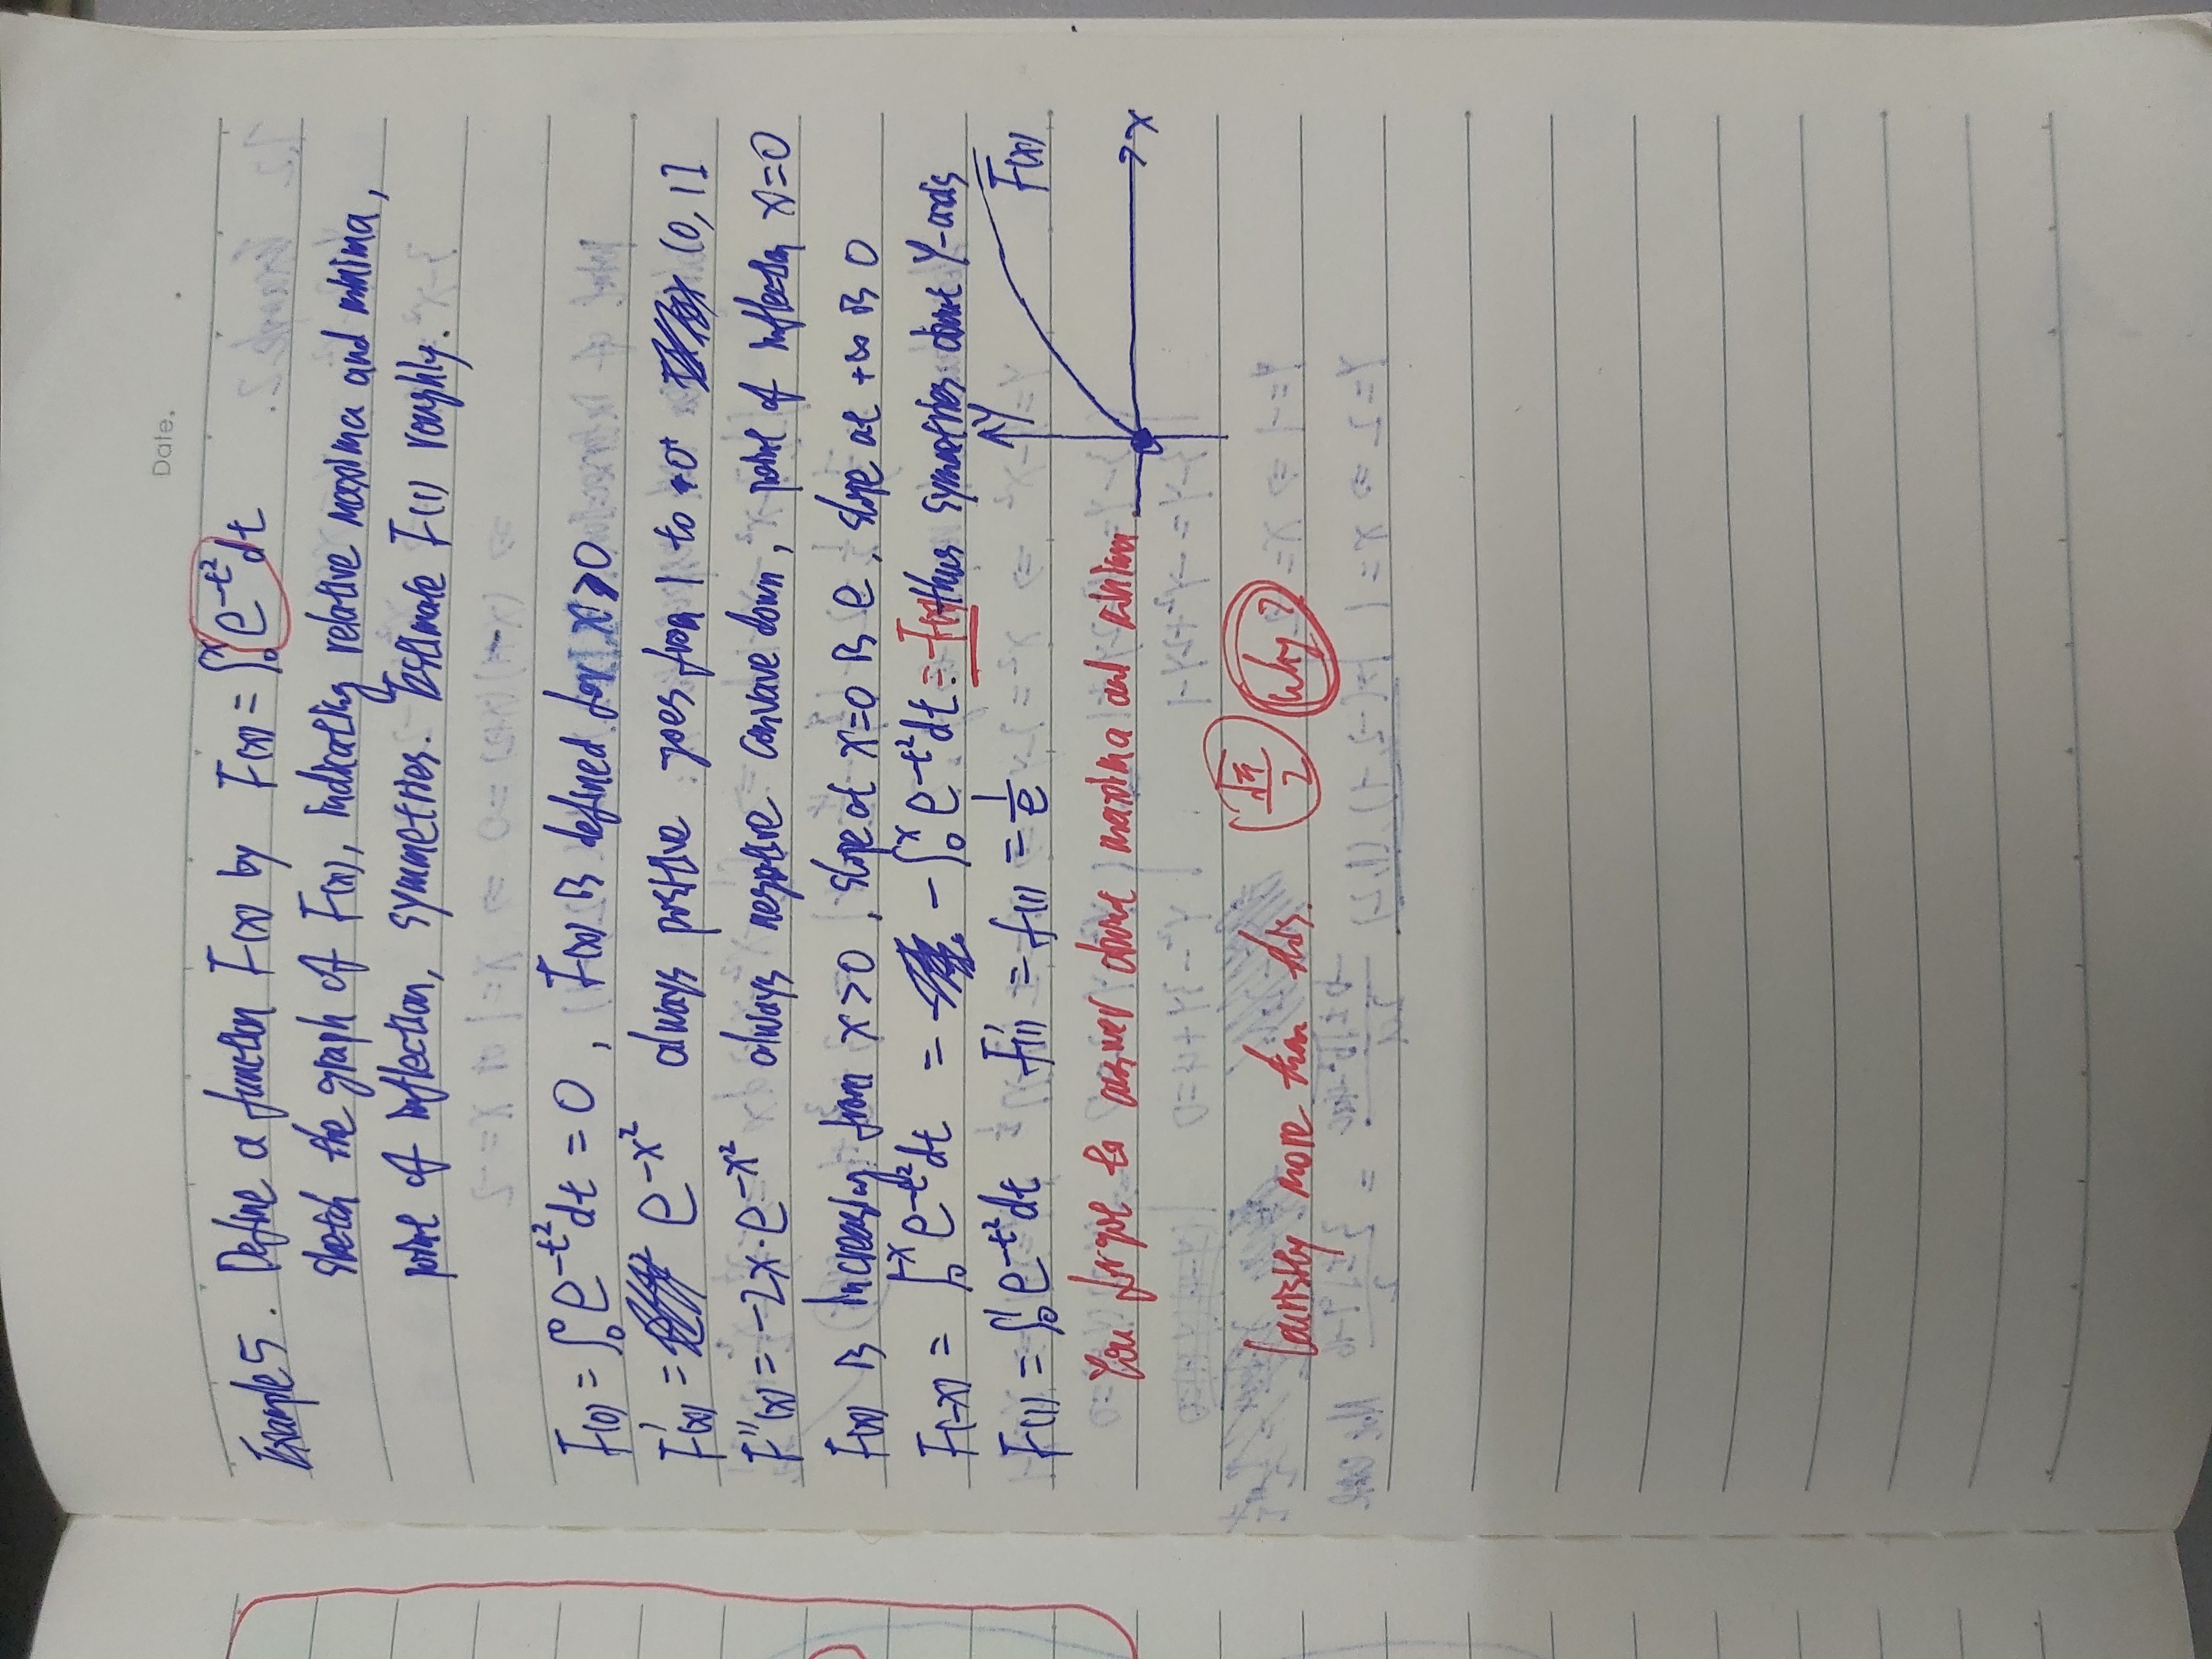 Date.
Example 5. Define a function F(x) by F(x) = ∫₀ˣ e^{-t²} dt
sketch the graph of F(x), indicating relative maxima and minima,
point of inflection, symmetries. Estimate F(1) roughly.
F(0) = ∫₀⁰ e^{-t²} dt = 0, F(x) is defined for x ≥ 0
F'(x) = e^{-x²} always positive goes from 1 to 0⁺ (0, 1]
F''(x) = -2x · e^{-x²} always negative concave down, point of inflection x=0
F(x) is increasing from x>0, slope at x=0 is e, slope at +∞ is 0
F(-x) = ∫₀^{-x} e^{-t²} dt = - ∫₀ˣ e^{-t²} dt = -F(x) thus symmetries about Y-axis
F(1) = ∫₀¹ e^{-t²} dt F'(1) = f(1) = 1/e
Y
F(x)
x
You forgot to answer about maxima and minima
more than this. √π/2 Why?